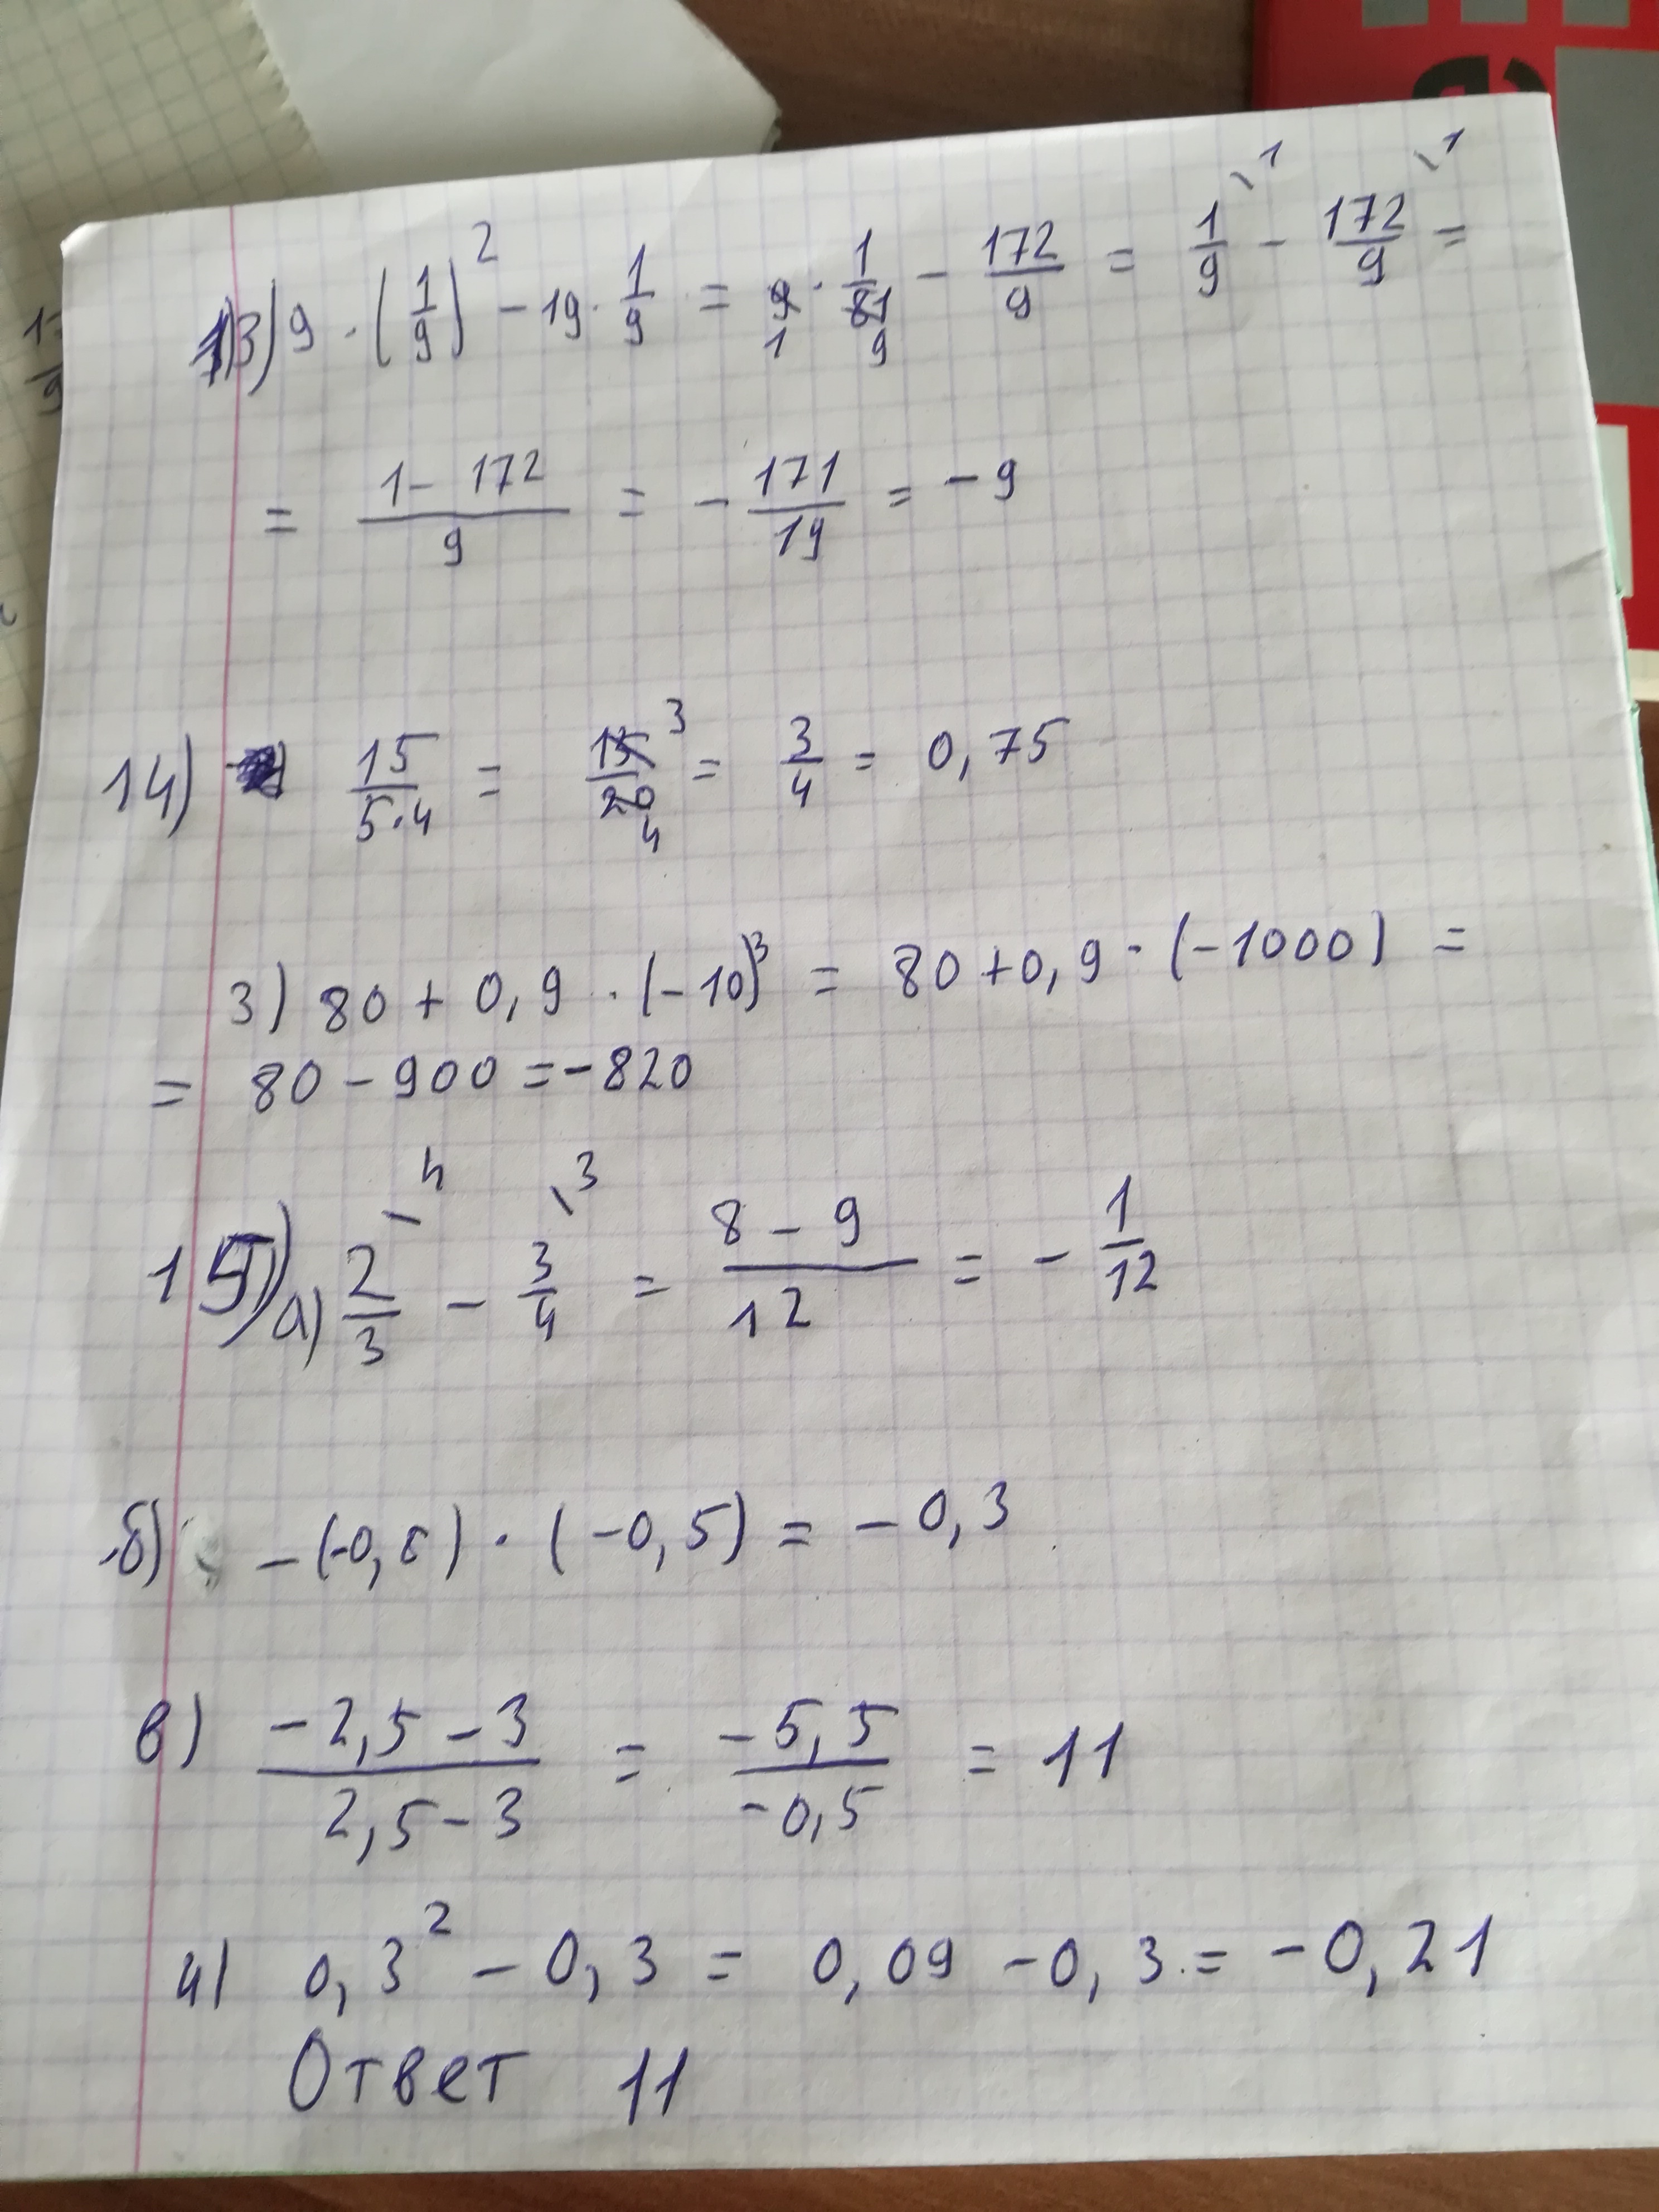 13) 9 · (1/9)² - 19 · 1/9 = 9/1 · 1/81/9 - 172/9 = 1/9\1 - 172/9\1 =
= (1 - 172)/9 = - 171/19 = - 9
14) 15/(5·4) = 15³/20₄ = 3/4 = 0,75
3) 80 + 0,9 · (-10)³ = 80 + 0,9 · (-1000) =
= 80 - 900 = -820
15) а) 2/3\4 - 3/4\3 = (8 - 9)/12 = - 1/12
б) - (-0,6) · (-0,5) = - 0,3
в) (-2,5 - 3)/(2,5 - 3) = -5,5/-0,5 = 11
4) 0,3² - 0,3 = 0,09 - 0,3 = -0,21
Ответ 11